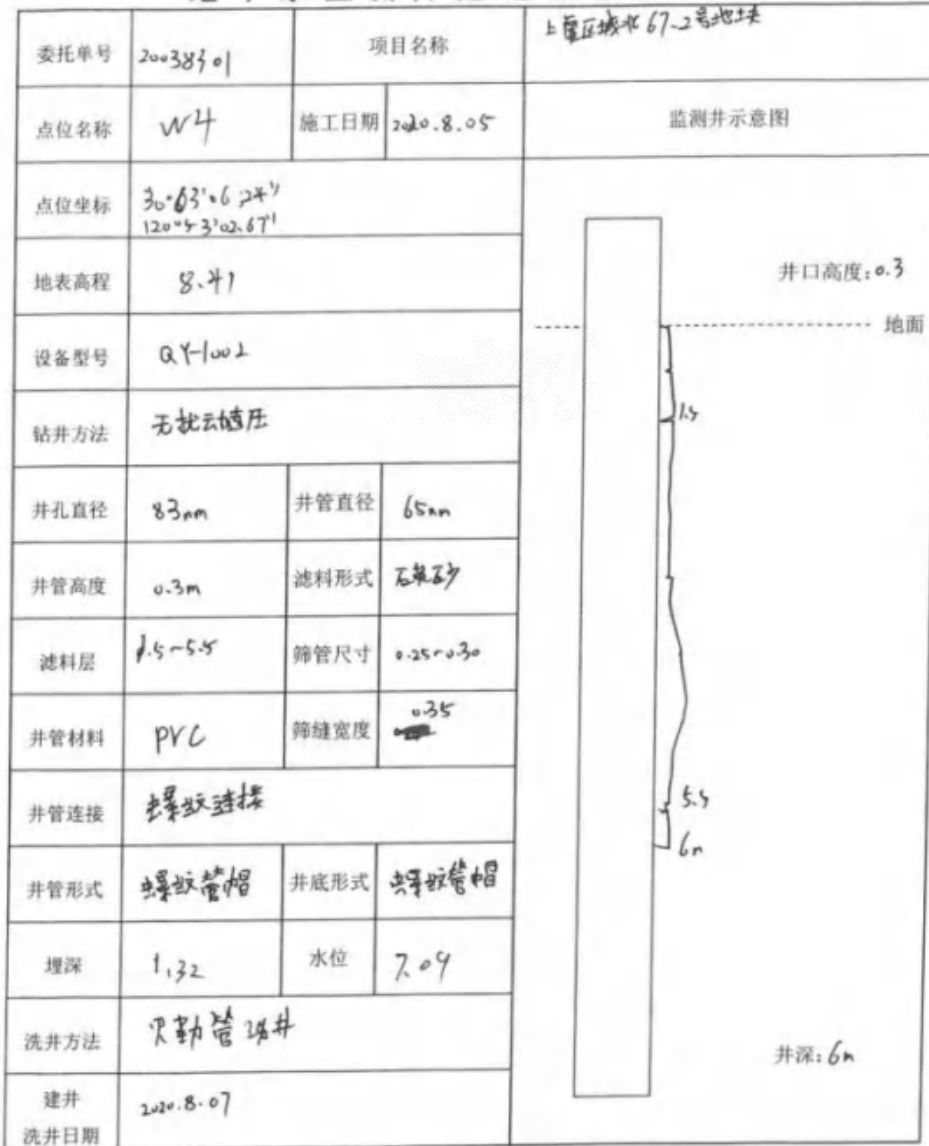 委托单号 20038301 项目名称 上虞区城北67-2号地块
点位名称 W4 施工日期 2020.8.05 监测井示意图
点位坐标 30°03'06.24"
120°53'02.67"
地表高程 8.41
井口高度:0.3
地面
设备型号 QY-100L
钻井方法
1.5
井孔直径 83mm 井管直径 65mm
井管高度 0.3m 滤料形式 石英砂
滤料层 1.5~5.5 筛管尺寸 0.25~0.30
井管材料 PVC 筛缝宽度 0.35
井管连接 螺纹连接
5.5
6m
井管形式 螺纹管帽 井底形式 螺纹管帽
埋深 1.32 水位 7.09
洗井方法 贝勒管洗井
井深:6m
建井
洗井日期 2020.8.07